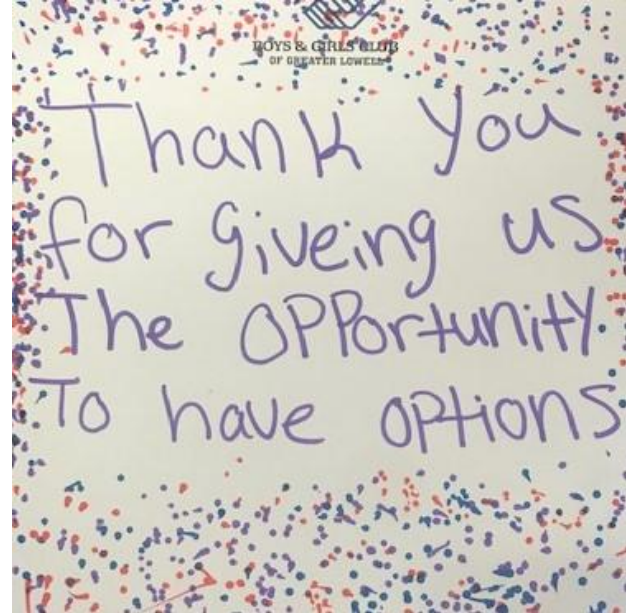 BOYS & GIRLS CLUB
OF GREATER LOWELL
Thank You
for giveing us
The OPPortunity
To have options